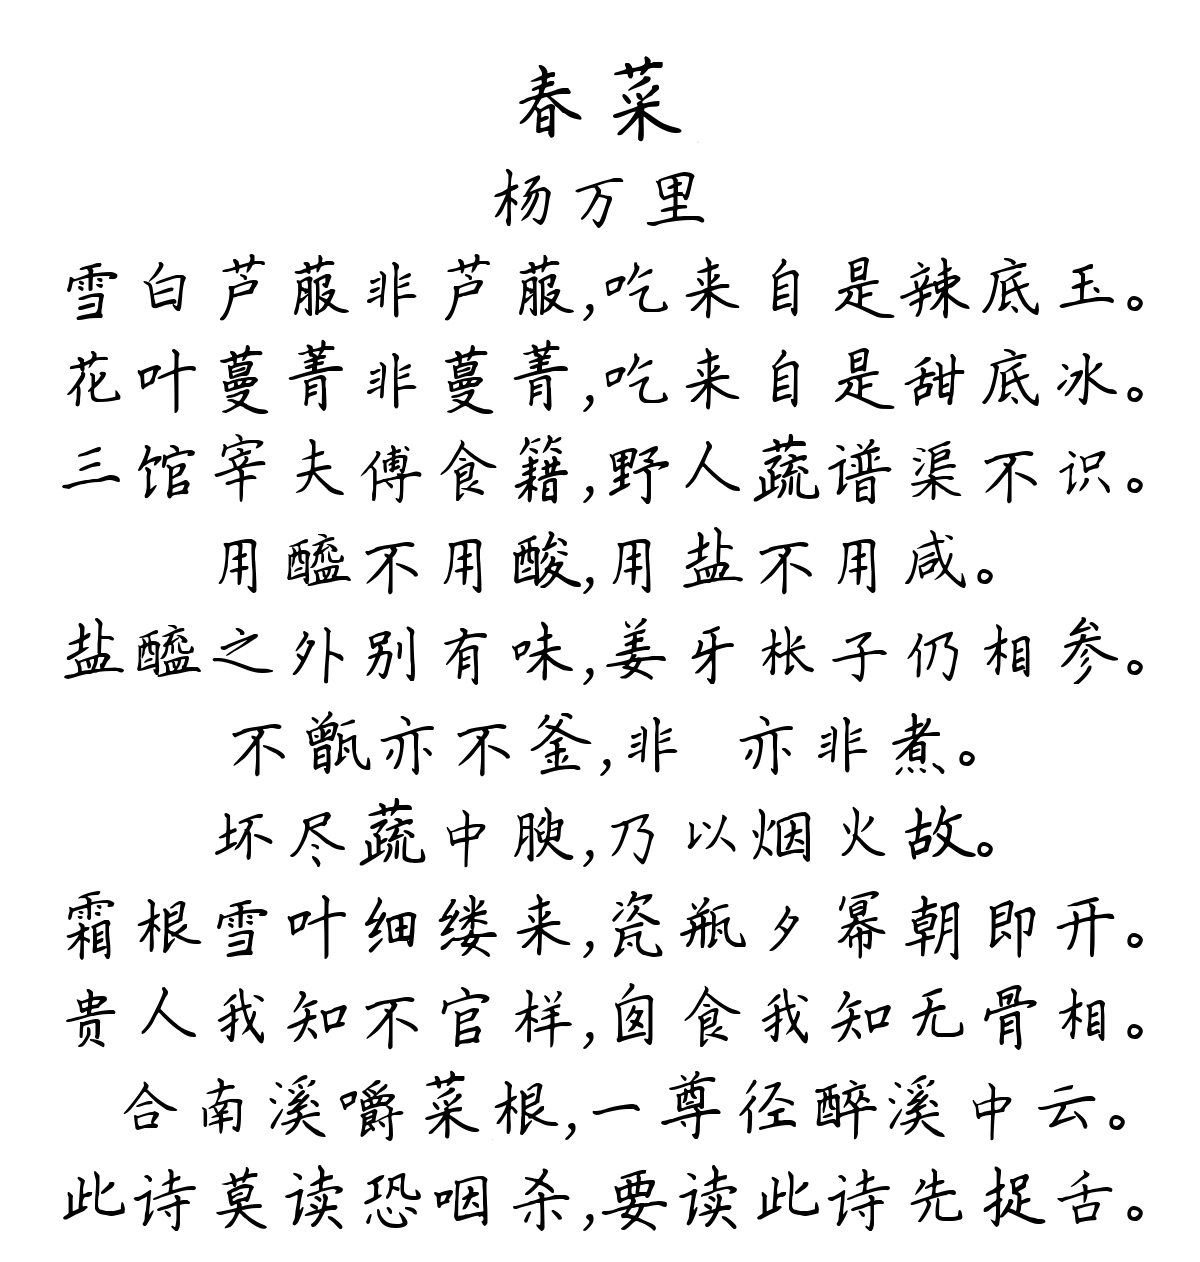 春菜
杨万里
雪白芦菔非芦菔,吃来自是辣底玉。
花叶蔓菁非蔓菁,吃来自是甜底冰。
三馆宰夫傅食籍,野人蔬谱渠不识。
用醯不用酸,用盐不用咸。
盐醯之外别有味,姜牙枨子仍相参。
不甑亦不釜,非 亦非煮。
坏尽蔬中腴,乃以烟火故。
霜根雪叶细缕来,瓷瓶夕幂朝即开。
贵人我知不官样,囱食我知无骨相。
合南溪嚼菜根,一尊径醉溪中云。
此诗莫读恐咽杀,要读此诗先捉舌。